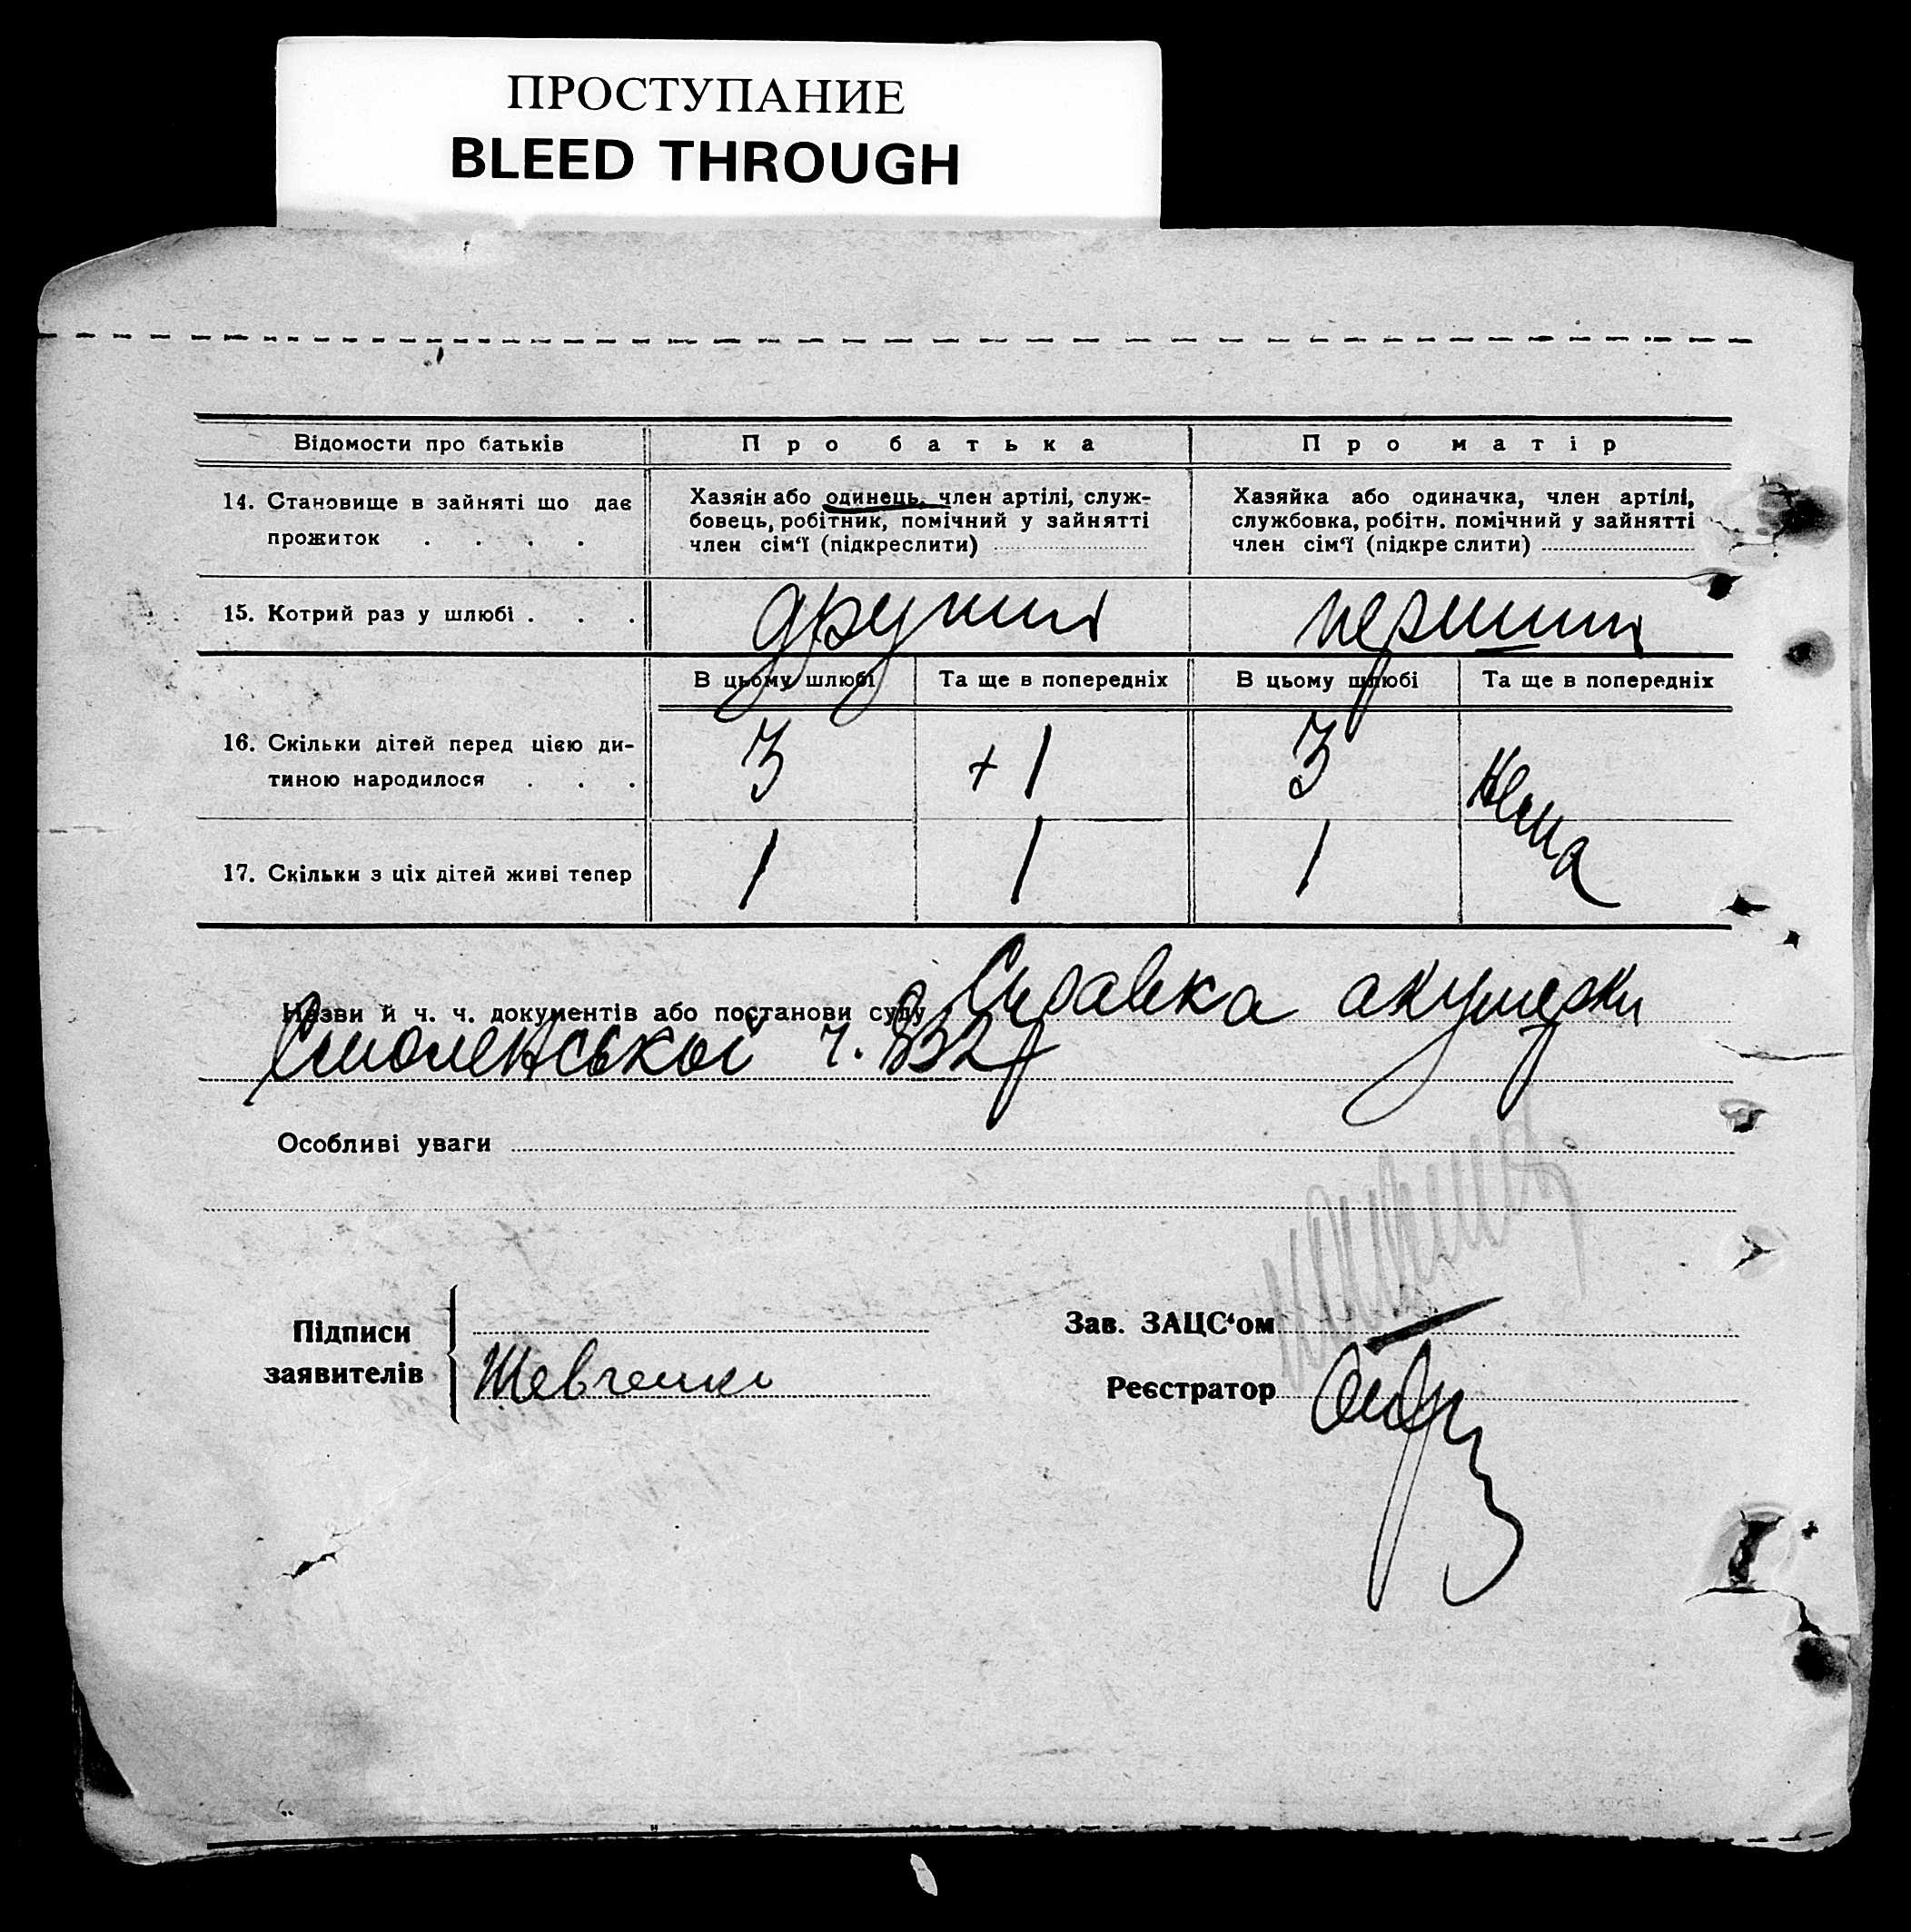 ПРОСТУПАНИЕ
BLEED THROUGH
Відомости про батьків
Про батька
Про матір
14. Становище в зайняті що дає
прожиток . . . .
Хазяїн або одинець, член артілі, служ-
бовець, робітник, помічний у зайнятті
член сім'ї (підкреслити)
Хазяйка або одиначка, член артілі,
службовка, робітн. помічний у зайнятті
член сім'ї (підкреслити)
15. Котрий раз у шлюбі . . .
другий
перший
В цьому шлюбі
Та ще в попередніх
В цьому шлюбі
Та ще в попередніх
16. Скільки дітей перед цією ди-
тиною народилося . . .
3
+1
3
нема
17. Скільки з ціх дітей живі тепер
1
1
1
Назви й ч. ч. документів або постанови суду Справка акушерки
Смоленської ч.
Особливі уваги
Підписи
заявителів
Шевченко
Зав. ЗАЦС'ом
Реєстратор